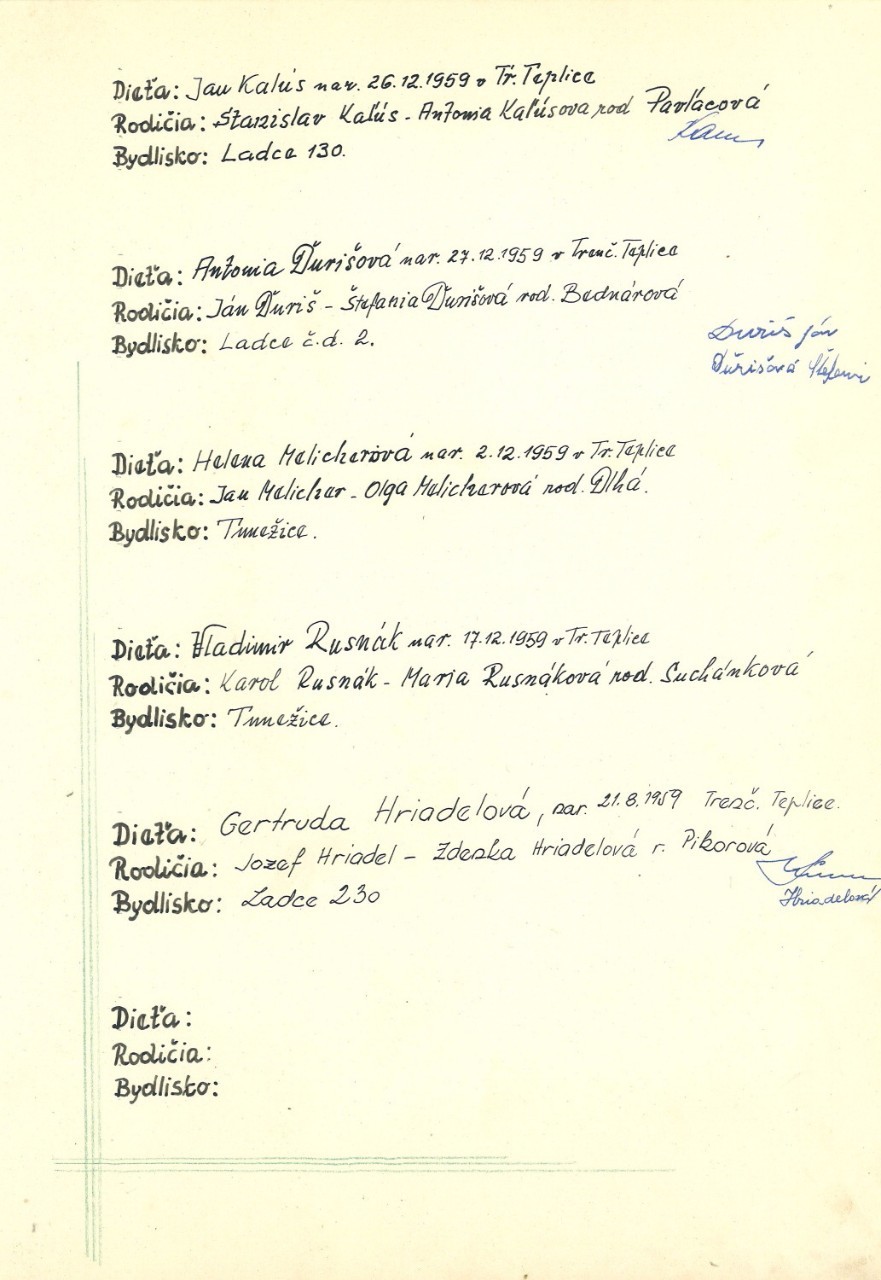 Dieťa: Jan Kalús nar. 26.12.1959 v Tr. Teplice
Rodičia: Stanislav Kaľús - Antonia Kaľúsova rod Pavlacová
Bydlisko: Ladce 130.
Dieťa: Antonia Ďurišová nar. 27.12.1959 v Trenč. Teplice
Rodičia: Ján Ďuriš - Štefania Ďurišová rod. Bednárová
Bydlisko: Ladce č.d. 2.
Duriš Ján
Ďurišová Štefani
Dieťa: Helena Melicherová nar. 2.12.1959 v Tr. Teplice
Rodičia: Jan Melicher - Olga Melicherová rod. Dlhá.
Bydlisko: Tunežice.
Dieťa: Vladimir Rusnák nar. 17.12.1959 v Tr. Teplice
Rodičia: Karol Rusnák - Maria Rusnáková rod. Suchánková
Bydlisko: Tunežice.
Dieťa: Gertruda Hriadelová, nar. 21.8.1959 Trenč. Teplice.
Rodičia: Jozef Hriadel - Zdenka Hriadelová r. Pikorová
Bydlisko: Ladce 230
Hriadelová
Dieťa:
Rodičia:
Bydlisko: